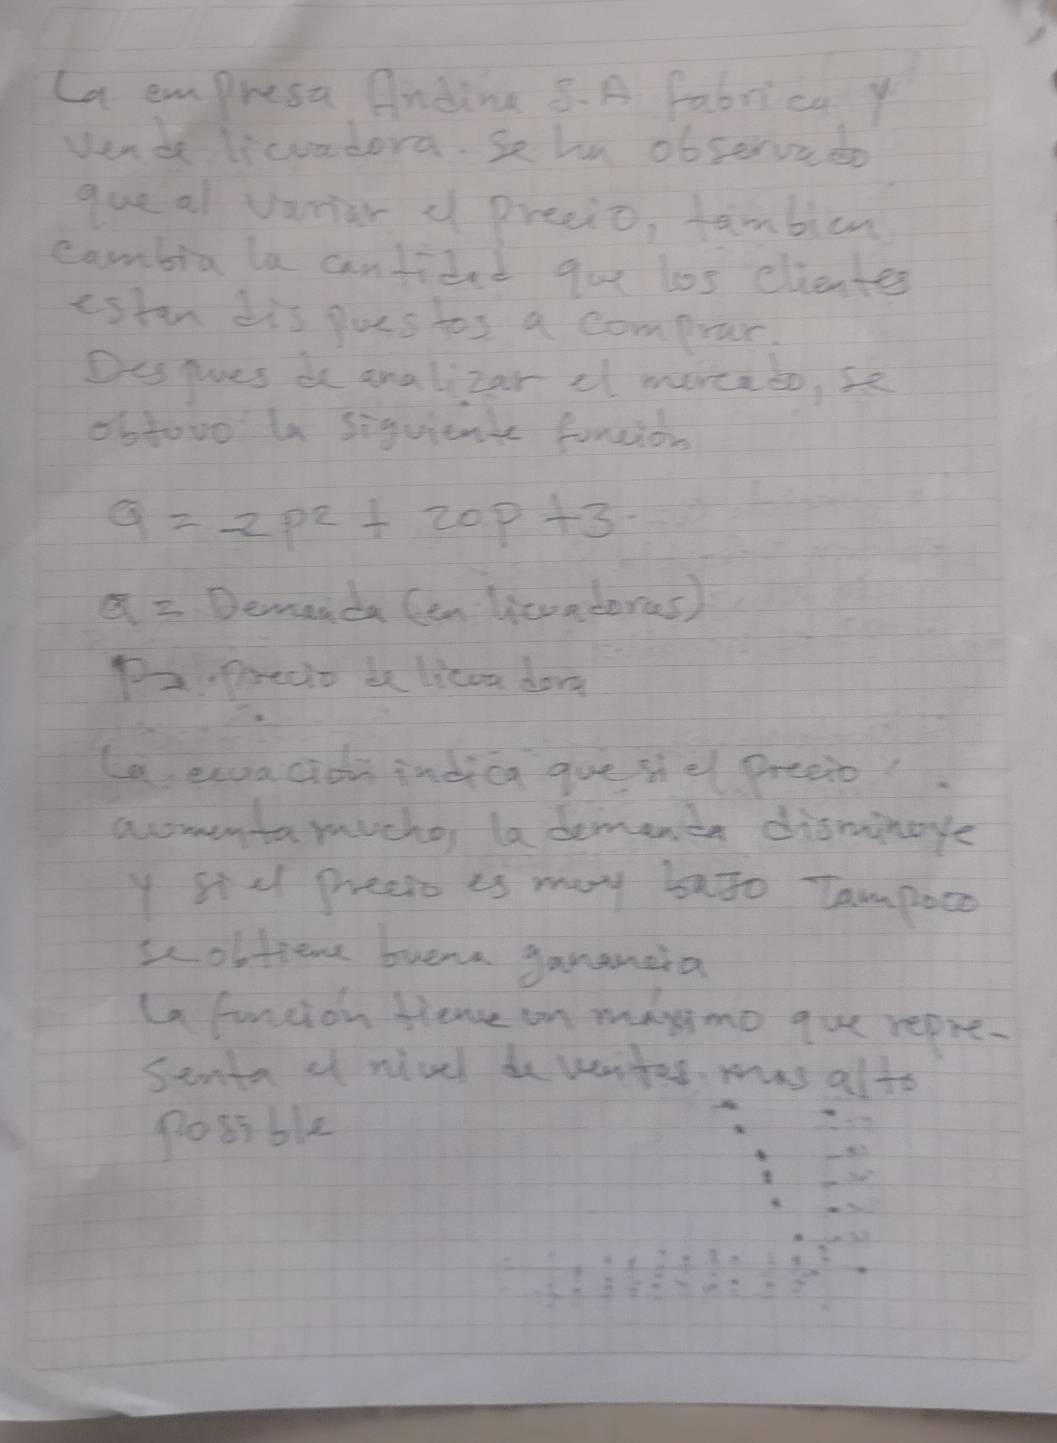 La empresa Andina S.A fabrica y
vende licuadora. Se ha observado
que al variar el precio, tambien
cambia la cantidad que los clientes
estan dispuestos a comprar.
Despues de analizar el mercado, se
obtuvo la siguiente función
q = -2p2 + 20p + 3
q = Demanda (en licuadoras)
P= precio de licuadora
La ecuación indica que si el precio
aumenta mucho, la demanda disminuye
y si el precio es muy bajo Tampoco
se obtiene buena ganancia
La función tiene un máximo que repre-
senta el nivel de ventas mas alto
posible